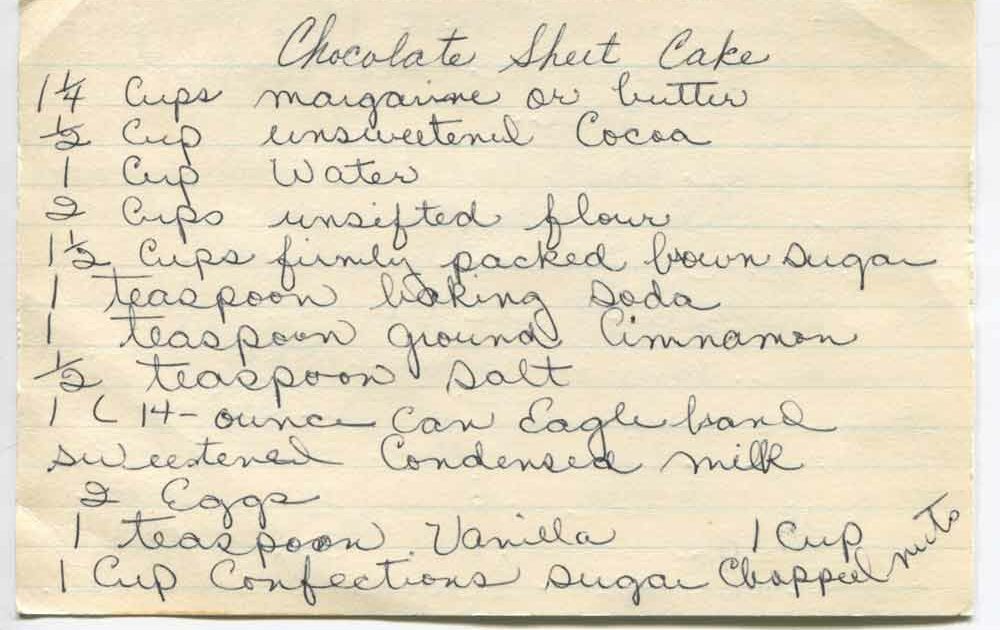 Chocolate Sheet Cake
1 1/4 Cups margarine or butter
1/2 Cup unsweetened Cocoa
1 Cup Water
2 Cups unsifted flour
1 1/2 Cups firmly packed brown sugar
1 teaspoon baking soda
1 teaspoon ground Cinnamon
1/2 teaspoon salt
1 ( 14-ounce can Eagle brand
sweetened Condensed milk
2 Eggs
1 teaspoon Vanilla
1 Cup Confections sugar
1 Cup
Chopped nuts